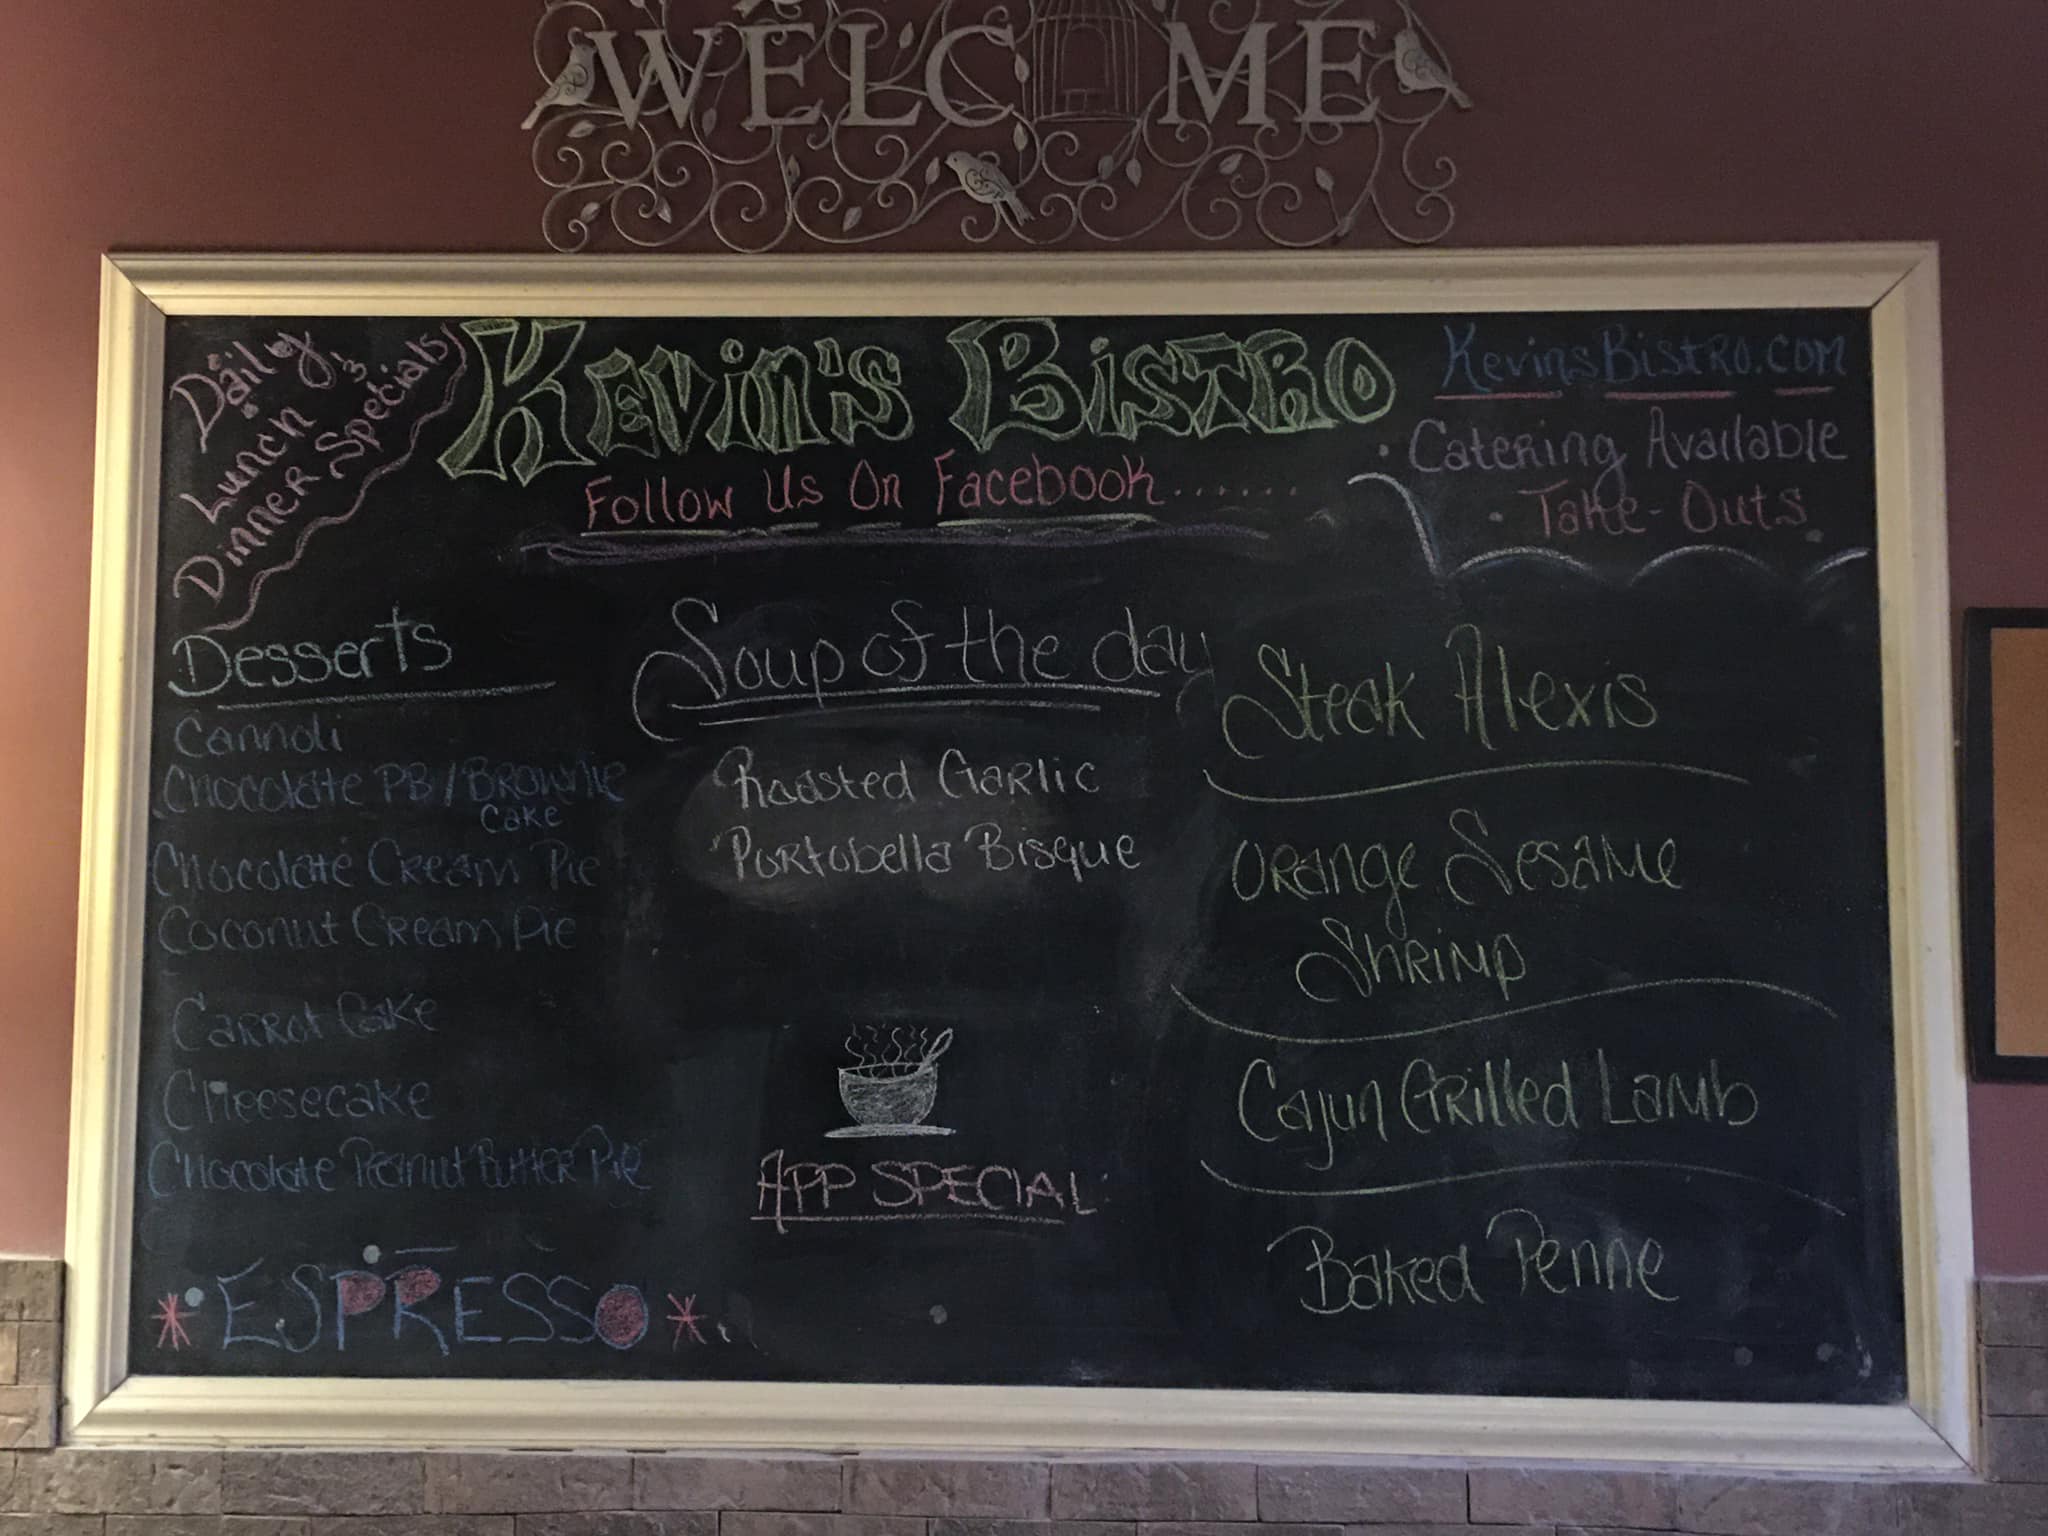 WELCOME
Daily
Lunch &
Dinner Specials
Kevin's Bistro
Follow Us On Facebook.......
KevinsBistro.com
· Catering Available
· Take-Outs
Desserts
Cannoli
Chocolate PB/Brownie
Cake
Chocolate Cream Pie
Coconut Cream Pie
Carrot Cake
Cheesecake
Chocolate Peanut Butter Pie
* ESPRESSO *
Soup of the day
Roasted Garlic
Portobella Bisque
APP SPECIAL:
Steak Alexis
Orange Sesame
Shrimp
Cajun Grilled Lamb
Baked Penne